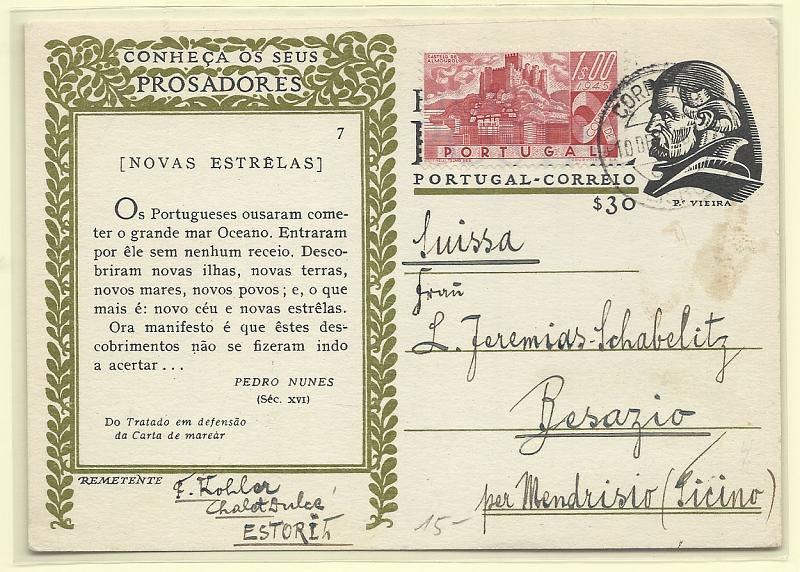 CONHEÇA OS SEUS
PROSADORES
7
[NOVAS ESTRÊLAS]
Os Portugueses ousaram come-
ter o grande mar Oceano. Entraram
por êle sem nenhum receio. Desco-
briram novas ilhas, novas terras,
novos mares, novos povos; e, o que
mais é: novo céu e novas estrêlas.
Ora manifesto é que êstes des-
cobrimentos não se fizeram indo
a acertar...
PEDRO NUNES
(Séc. XVI)
Do Tratado em defensão
da Carta de marear
REMETENTE F. Kohler
Chalet Dulce
ESTORIL
15-
CASTELO DE
ALMOUROL
1$00
1945
CORREIO
PORTUGAL
PORTUGAL-CORREIO
$30
P.e VIEIRA
Suissa
Frau
L. Jeremias-Schabelitz
Besazio
per Mendrisio (Ticino)